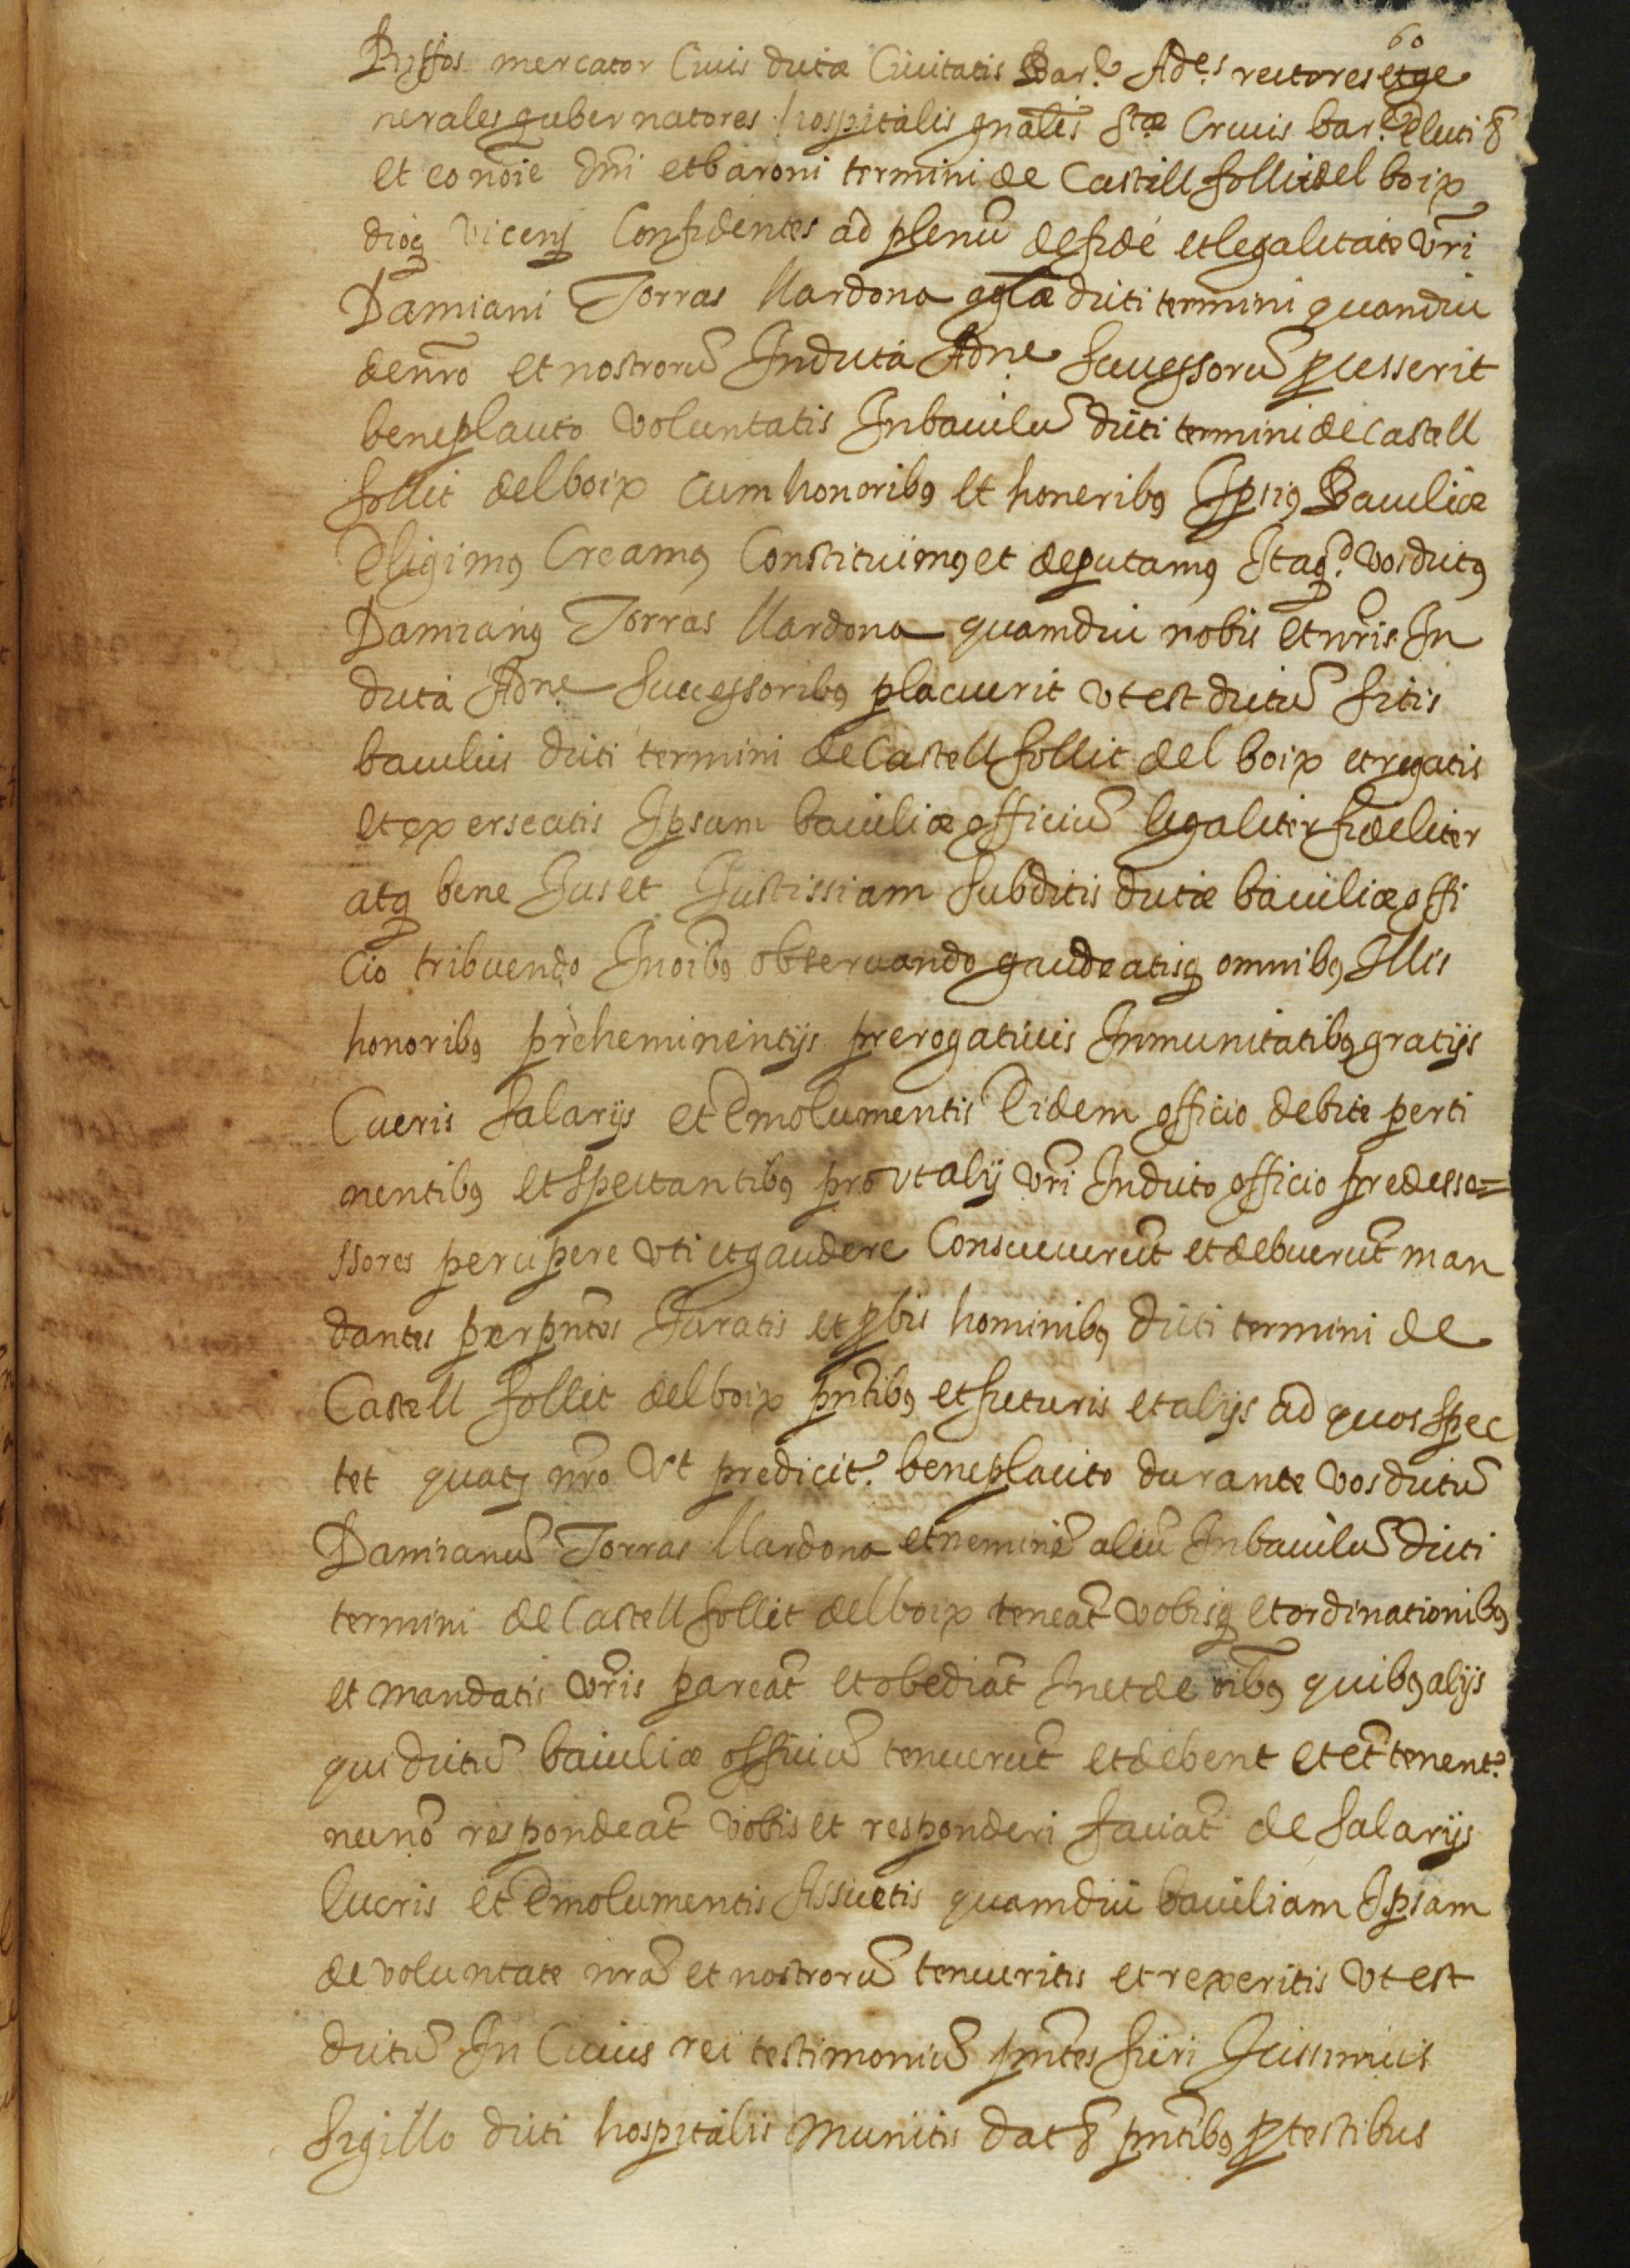 60
Pujos mercator Civis dictæ Civitatis Bar.e Ad.es rectores et ge
nerales gubernatores hospitalis gnalis Stæ Crucis bar.e electi &
et eo noie dni et baroni termini de Castill follit del boix
dioc vicens Confidentes ad plenū de fide et legalitate vri
Damiani Torras llardona aglæ dicti termini quandiu
de nro et nostrorū In dicta Adne successorū processerit
beneplacito voluntatis In baiulū dicti termini de Castell
follit del boix cum honoribꝰ et honeribꝰ Ipsiꝰ Baiuliæ
Eligimꝰ Creamꝰ Constituimꝰ et deputamꝰ Itaq. vos dictꝰ
Damianꝰ Torras llardona quamdiu nobis et nris In
dicta Adne successoribꝰ placuerit vt est dictū sitis
baiulus dicti termini de Castell follit del boix et regatis
et exerseatis Ipsam baiuliæ officiū legaliter fideliter
atq bene Jus et Justissiam subditis dictæ baiuliæ offi
cio tribuendo In oibꝰ observando gaudeatisq omnibꝰ Illis
honoribꝰ preheminentijs prerogativis Inmunitatibꝰ gratijs
lueris salarijs et Emolumentis Eidem officio debite perti
nentibꝰ et spectantibꝰ pro vt alij vri In dicto officio predesso=
ssores percipere vti et gaudere Consueverūt et debuerūt man
dantes per pntes Juratis et pbis hominibꝰ dicti termini de
Castell follit del boix pntibꝰ et futuris et alijs ad quos spec
tet quatꝰ nro vt predicit. beneplacito durante vos dictū
Damianū Torras llardona et neminē aliū In baiulū dicti
termini de Castell follit del boix teneāt vobisq et ordinationibꝰ
et mandatis vris pareāt et obediāt In et de oibꝰ quibꝰ alijs
qui dictū baiuliæ officiū tenuerūt et debent et et tenent.
necnō respondeāt vobis et responderi faciāt de salarijs
lucris et Emolumentis Assuetis quamdiu baiuliam Ipsam
de voluntate nra et nostrorū tenueritis et rexeritis vt est
dictū In Cuius rei testimoniū pntes fieri Jussimus
sigillo dicti hospitalis munitis dat & pntibꝰ p testibus